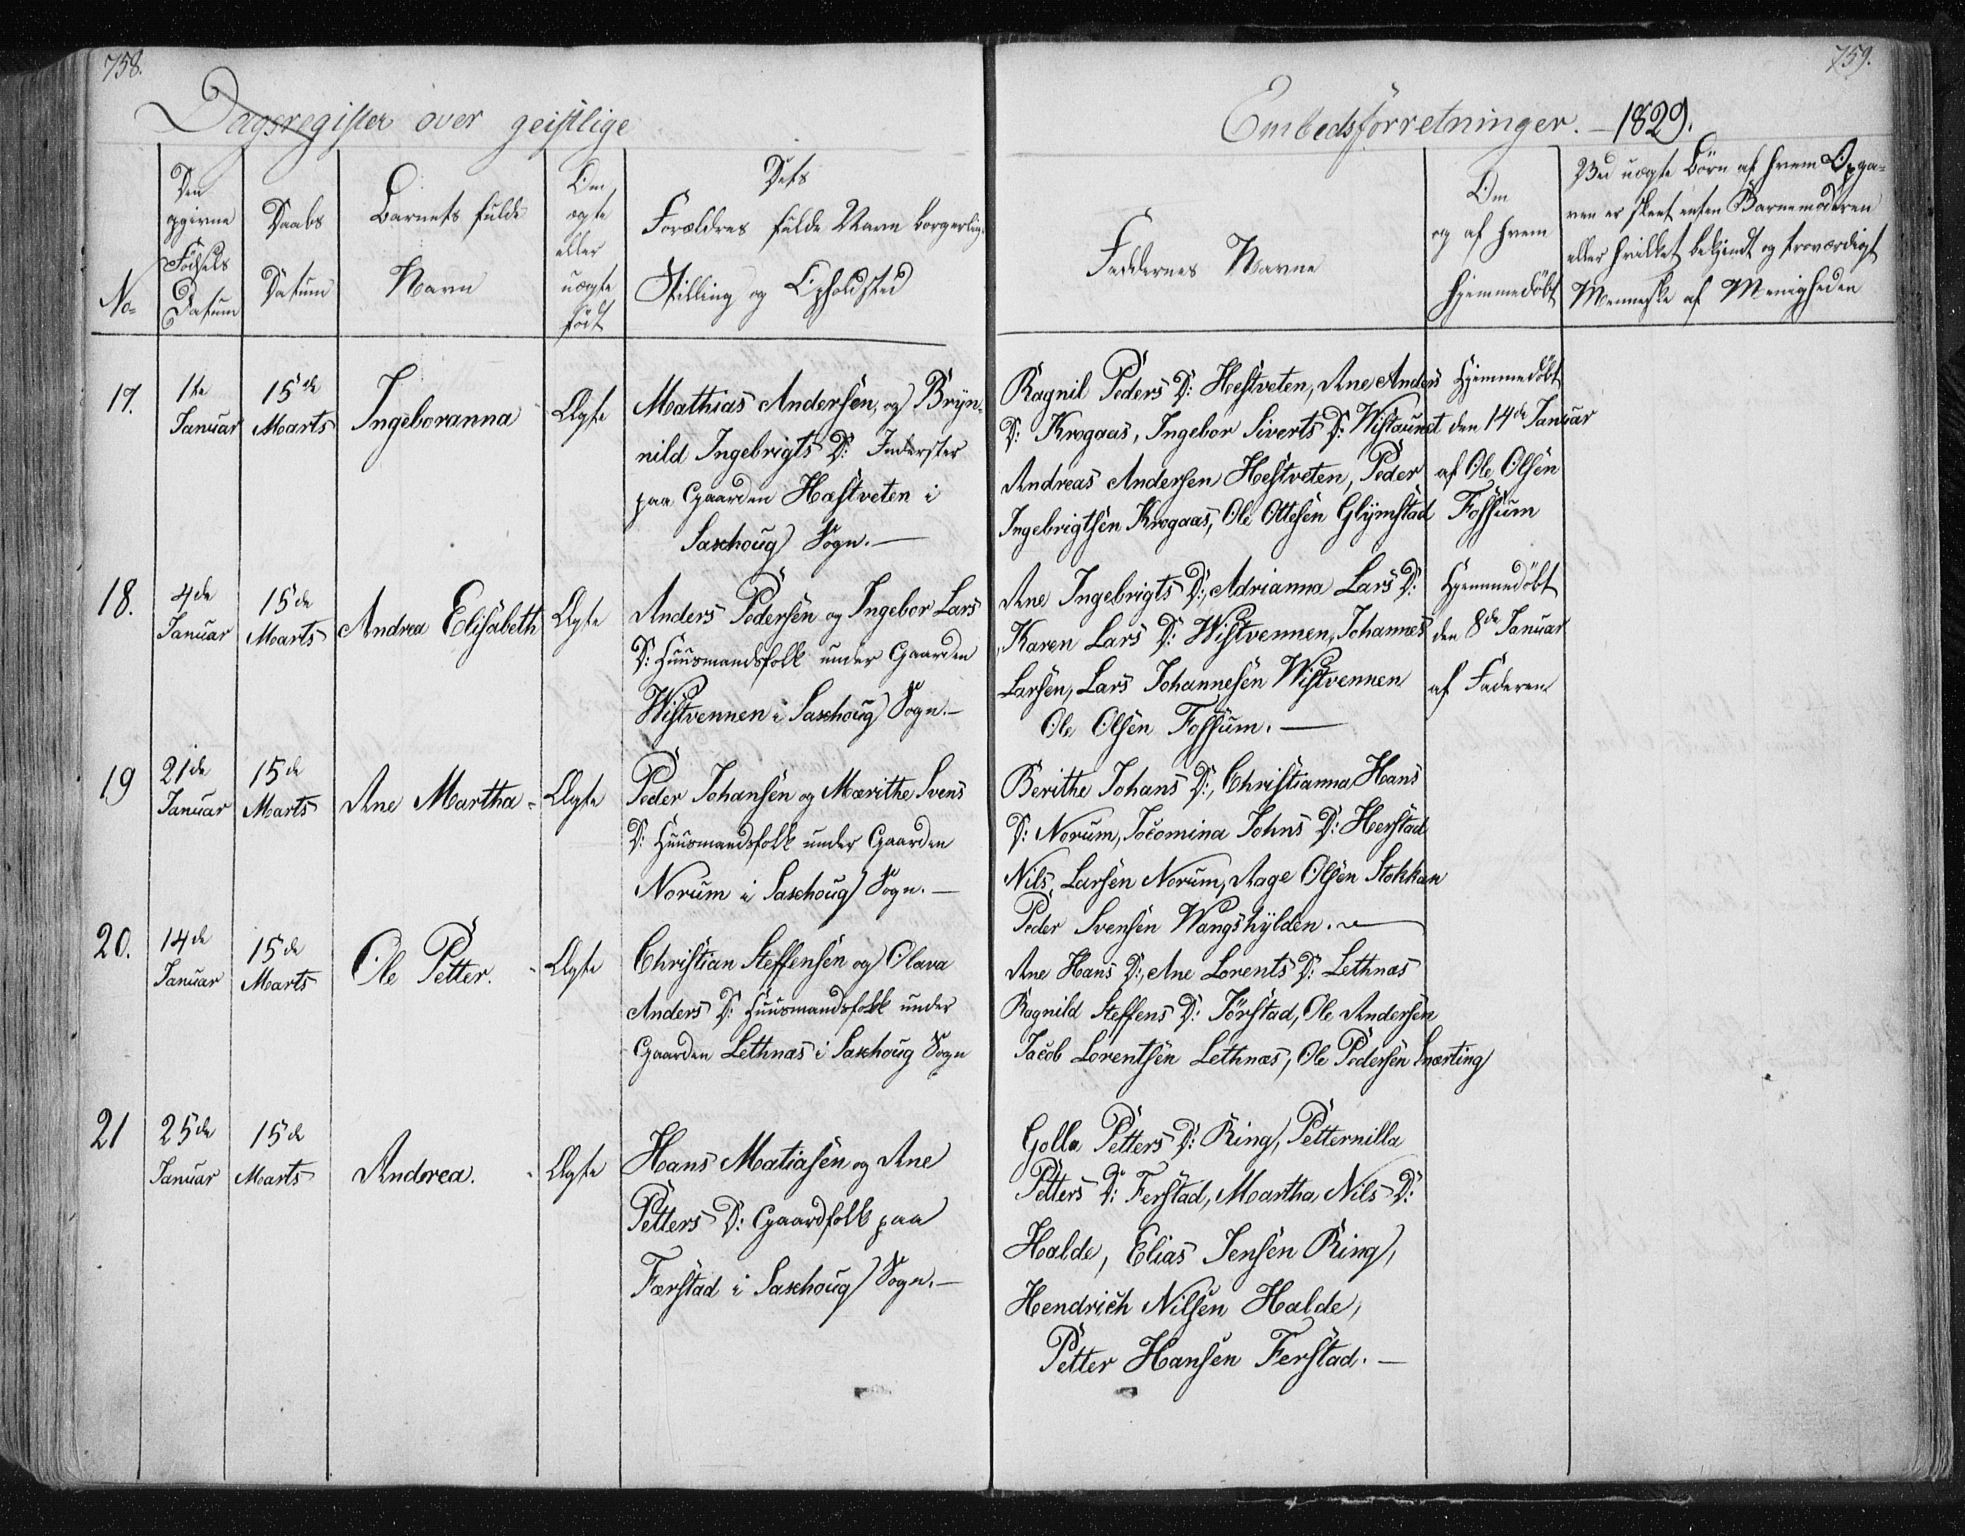 758.
Dagsregister over geistlige
No
Den
opgivne
Födsels
Datum
Daabs
Datum
Barnets fulde
Navn
Om
ægte
eller
uægte
födt
Dets
Forældres fulde Navn borgerlige
Stilling og Opholdsted
17.
1te
Januar
15de
Marts
Ingeboranna
Ægte
Mathias Andersen, og Bryn-
nild Ingebrigts D: Inderster
paa Gaarden Hæstveten i
Saxhoug Sogn. —
18.
4de
Januar
15de
Marts
Andrea Elisabeth
Ægte
Anders Pedersen og Ingebor Lars
D: Huusmandsfolk under Gaarden
Wistvennen i Saxhoug Sogn. —
19
21de
Januar
15de
Marts
Ane Martha -
Ægte
Peder Johansen og Mærithe Svens
D: Huusmandsfolk under Gaarden
Norum i Saxhoug Sogn. —
20.
14de
Januar
15de
Marts
Ole Petter.
Ægte
Christian Steffensen og Olava
Anders D: Huusmandsfolk under
Gaarden Lethnæs i Saxhoug Sogn
21
25de
Januar
15de
Marts
Andrea.
Ægte
Hans Matiasen og Ane
Petters D: Gaardfolk paa
Færstad i Saxhoug Sogn. —
759.
Embedsforretninger. — 1829.
Faddernes Navne
Om
og af hvem
hjemmedöbt
Ved uægte Börn af hvem Opga-
ven er skeet enten Barnemoderen
eller hvilket bekjendt og troværdigt
Menneske af Menigheden
Ragnil Peders D: Hestveten, Ane Anders
D: Krogaas, Ingebor Siverts D: Wistaunet
Andreas Andersen Hestveten, Peder
Ingebrigtsen Krogaas, Ole Ottesen Glymstad
Hjemmedöbt
den 14de Januar
af Ole Olsen
Fossum
Ane Ingebrigts D:, Adrianna Lars D:
Karen Lars D: Wistvennen, Johannes
Larsen, Lars Johannesen Wistvennen
Ole Olsen Fossum. —
Hjemmedöbt
den 8de Januar
af Faderen
Berithe Johans D:, Christianna Hans
D: Norum, Jocomina Johns D: Herstad
Nils Larsen Norum, Aage Olsen Stokkan
Peder Svensen Wangshylden. —
Ane Hans D:, Ane Lorents D: Lethnæs
Ragnild Steffens D: Jörstad, Ole Andersen
Jacob Lorentsen Lethnæs, Ole Pedersen Snærting
Golla Petters D: Ring, Petternilla
Petters D: Ferstad, Martha Nils D:
Halde, Elias Jensen Ring,
Hendrich Nilsen Halde,
Petter Hansen Ferstad. —